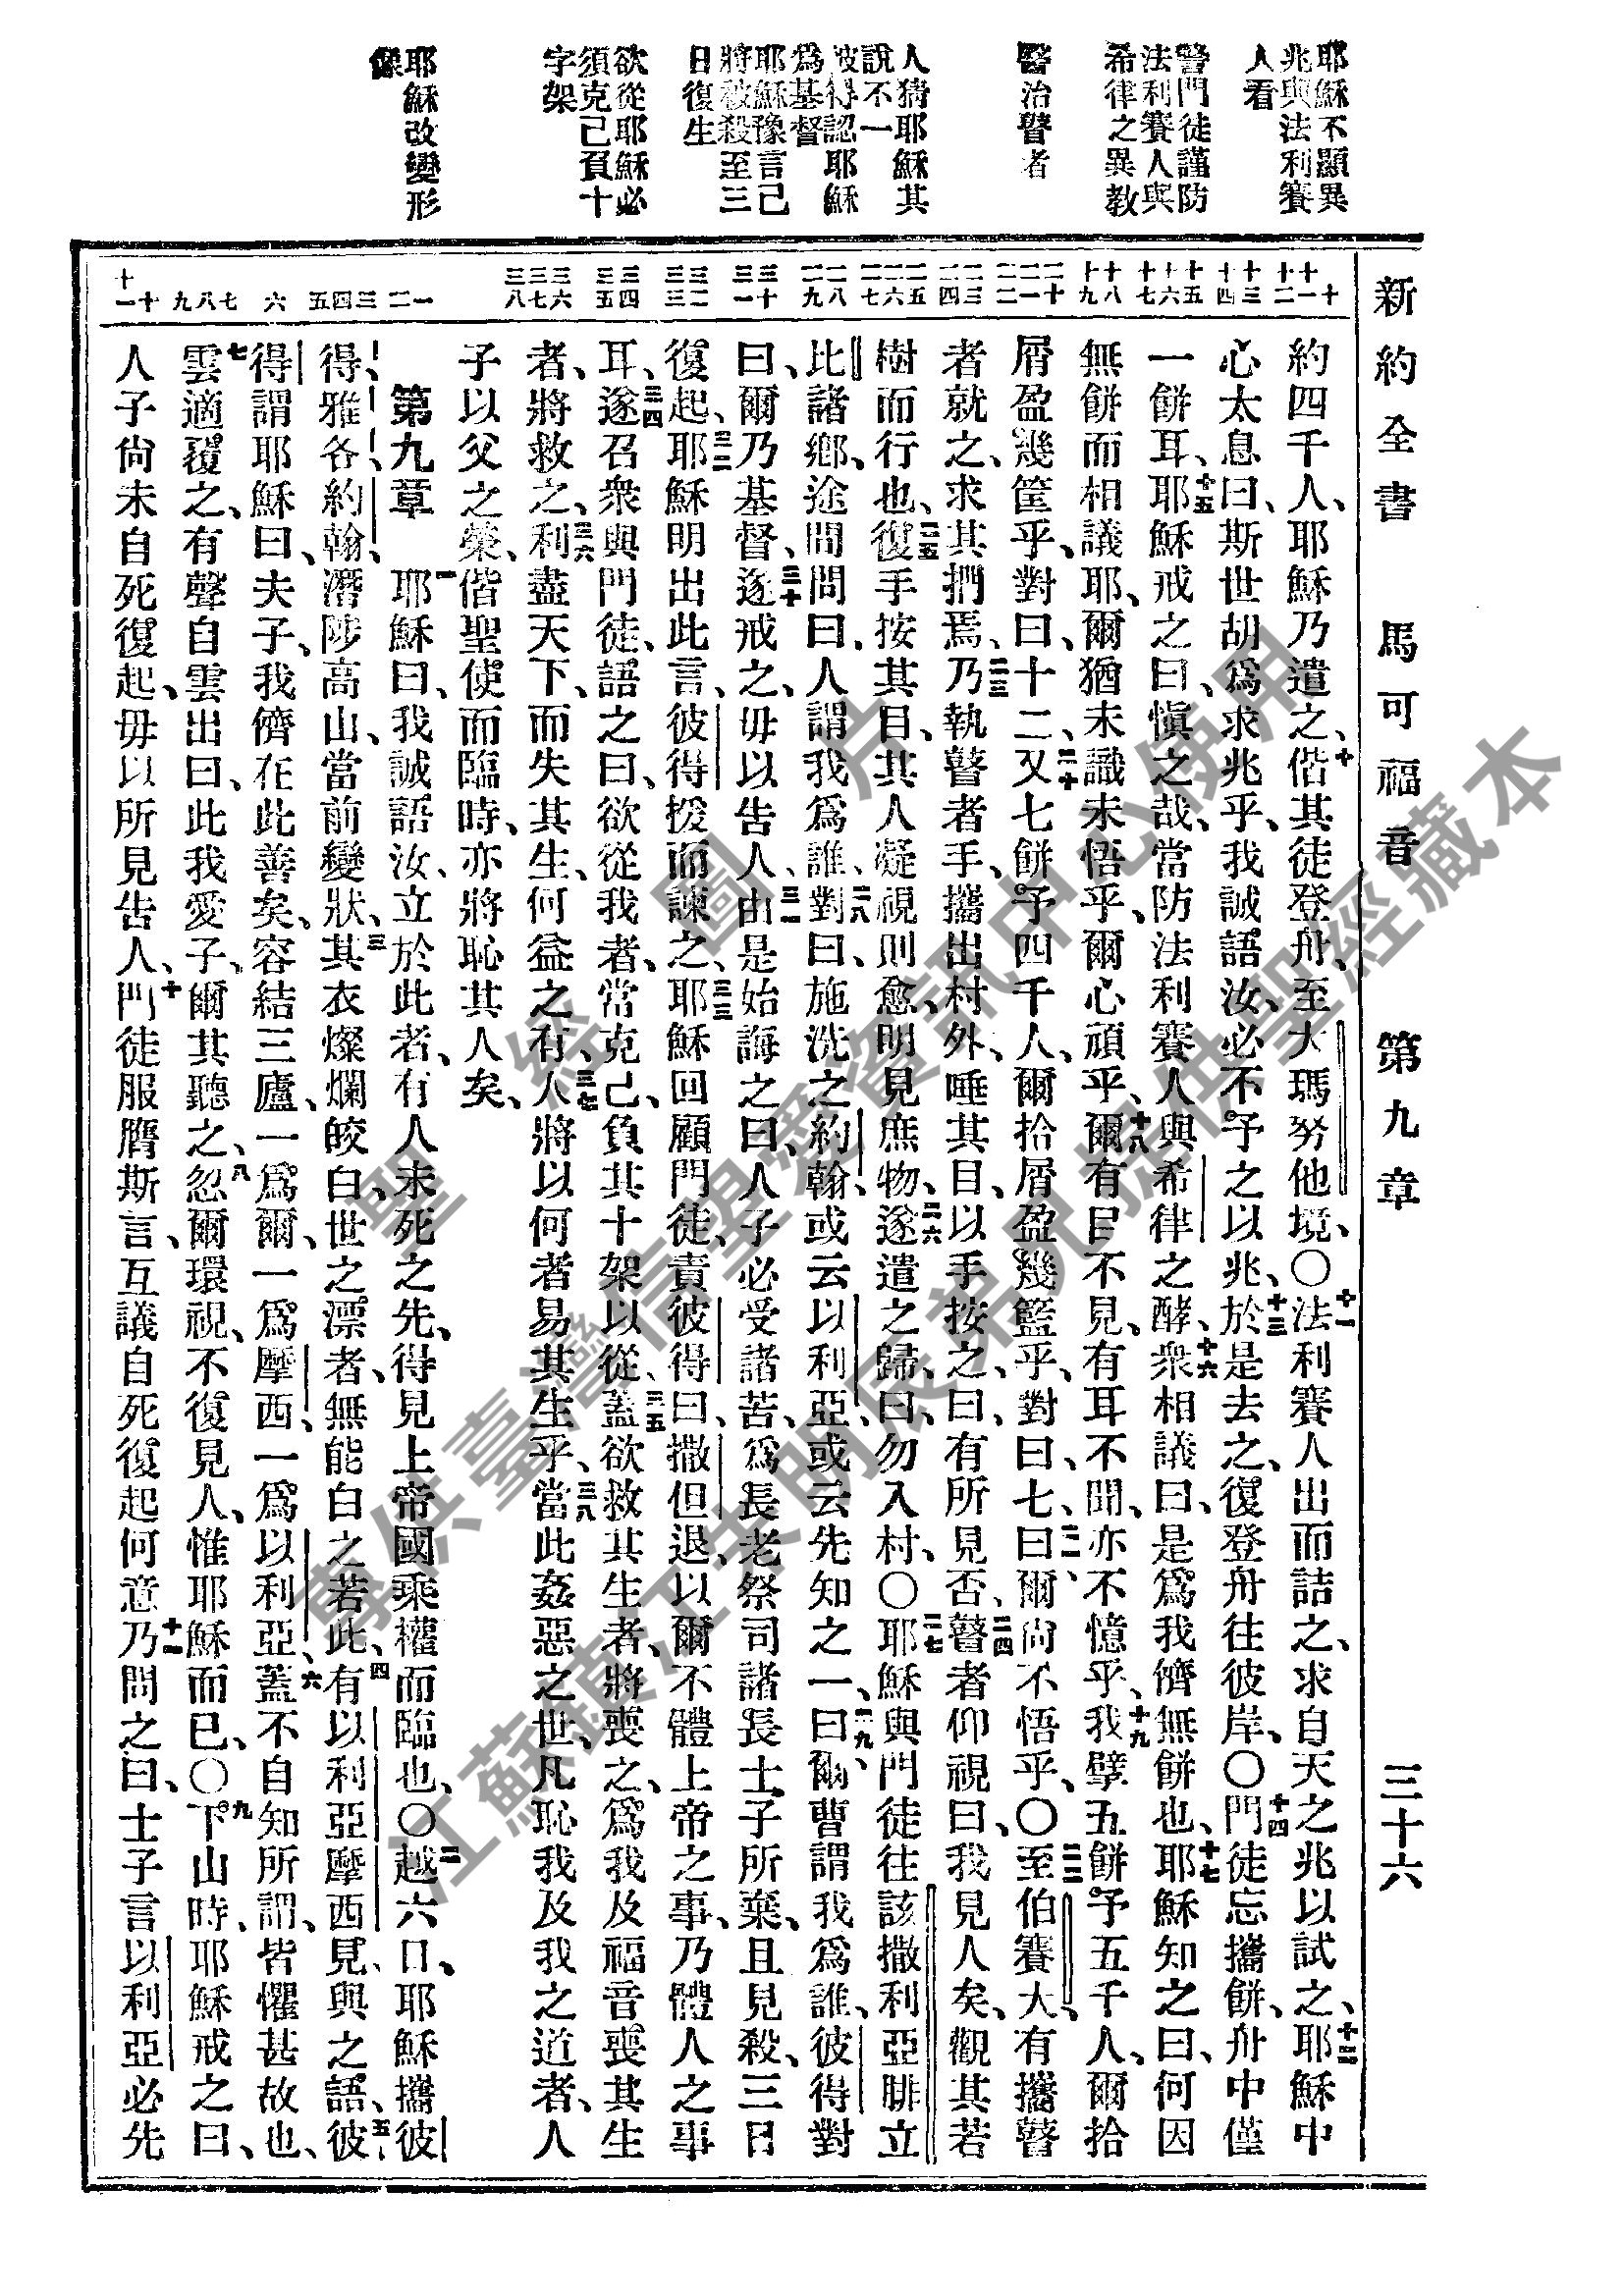 新約全書 馬可福音 第九章 三十六
耶穌不顯異
兆與法利賽
人看
警門徒謹防
法利賽人與
希律之異教
醫治瞽者
人猜耶穌其
說不一
彼得認耶穌
為基督
耶穌豫言己
將被殺至三
日復生
欲從耶穌必
須克己負十
字架
耶穌改變形
像
十 十一 十二 十三 十四 十五 十六 十七 十八 十九 二十 二一 二二 二三 二四 二五 二六 二七 二八 二九 三十 三一 三二 三三 三四 三五 三六 三七 三八 一 二 三 四 五 六 七 八 九 十 十一
約四千人、耶穌乃遣之、十偕其徒登舟、至大瑪努他境、〇十一法利賽人出而詰之、求自天之兆以試之、十二耶穌中
心太息曰、斯世胡爲求兆乎、我誠語汝、必不予之以兆、十三於是去之、復登舟往彼岸、〇十四門徒忘攜餅、舟中僅
一餅耳、十五耶穌戒之曰、愼之哉、當防法利賽人與希律之酵、十六衆相議曰、是爲我儕無餅也、十七耶穌知之曰、何因
無餅而相議耶、爾猶未識未悟乎、爾心頑乎、十八爾有目不見、有耳不聞、亦不憶乎、十九我擘五餅予五千人、爾拾
屑盈幾筐乎、對曰、十二、二十又七餅予四千人、爾拾屑盈幾籃乎、對曰、七、二一曰、爾尙不悟乎、〇二二至伯賽大、有攜瞽
者就之、求其捫焉、二三乃執瞽者手、攜出村外、唾其目、以手按之、曰、有所見否、二四瞽者仰視曰、我見人矣、觀其若
樹而行也、二五復手按其目、其人凝視則愈、明見庶物、二六遂遣之歸、曰、勿入村、〇二七耶穌與門徒往該撒利亞腓立
比諸鄉、途間問曰、人謂我爲誰、二八對曰、施洗之約翰、或云以利亞、或云先知之一、二九曰、爾曹謂我爲誰、彼得對
曰、爾乃基督、三十遂戒之、毋以告人、三一由是始誨之曰、人子必受諸苦、爲長老祭司諸長士子所棄、且見殺、三日
復起、三二耶穌明出此言、彼得援而諫之、三三耶穌回顧門徒、責彼得曰、撒但退、以爾不體上帝之事、乃體人之事
耳、三四遂召衆與門徒、語之曰、欲從我者、當克己、負其十架以從、三五蓋欲救其生者、將喪之、爲我及福音喪其生
者、將救之、三六利盡天下、而失其生、何益之有、三七人將以何者易其生乎、三八當此姦惡之世、凡恥我及我之道者、人
子以父之榮、偕聖使而臨時、亦將恥其人矣、
第九章 一耶穌曰、我誠語汝、立於此者、有人未死之先、得見上帝國乘權而臨也、〇二越六日、耶穌攜彼
得、雅各、約翰、潛陟高山、當前變狀、三其衣燦爛皎白、世之漂者、無能白之若此、四有以利亞摩西見、與之語、五彼
得謂耶穌曰、夫子、我儕在此善矣、容結三廬、一爲爾、一爲摩西、一爲以利亞、六蓋不自知所謂、皆懼甚故也、
七雲適覆之、有聲自雲出曰、此我愛子、爾其聽之、八忽爾環視、不復見人、惟耶穌而已、〇九下山時、耶穌戒之曰、
人子尙未自死復起、毋以所見告人、十門徒服膺斯言、互議自死復起何意、十一乃問之曰、士子言以利亞必先
聖 經 圖 片
專供臺灣信望愛資訊中心使用
江蘇鎮江朱明辰弟兄提供聖經藏本